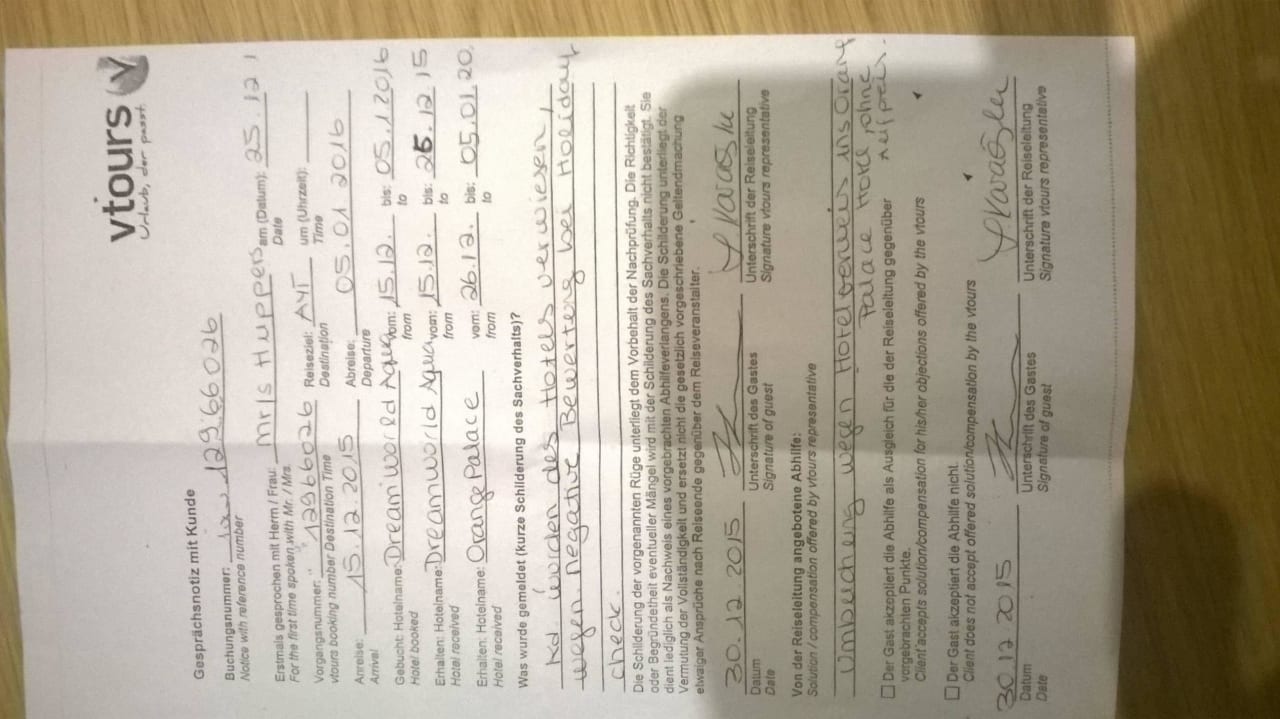 vtours
Urlaub, der passt.
Gesprächsnotiz mit Kunde
Buchungsnummer: 12966026
Notice with reference number
Erstmals gesprochen mit Herrn / Frau: Mr/s Huppers am (Datum): 25.12.1
For the first time spoken with Mr. / Mrs. Date
Vorgangsnummer: 12966026 Reiseziel: AYT um (Uhrzeit):
vtours booking number Destination Time Destination Time
Anreise: 15.12.2015 Abreise: 05.01 2016
Arrivel Departure
Gebucht: Hotelname: Dreamworld Aqua vom: 15.12. bis: 05.1.2016
Hotel booked from to
Erhalten: Hotelname: Dreamworld Aqua vom: 15.12. bis: 26.12.15
Hotel received from to
Erhalten: Hotelname: Orange Palace vom: 26.12. bis: 05.01.20
Hotel received from to
Was wurde gemeldet (kurze Schilderung des Sachverhalts)?
Kd. wurden des Hotels verwiesen,
wegen negative Bewertung bei Holiday
check.
Die Schilderung der vorgenannten Rüge unterliegt dem Vorbehalt der Nachprüfung. Die Richtigkeit
oder Begründetheit eventueller Mängel wird mit der Schilderung des Sachverhalts nicht bestätigt. Sie
dient lediglich als Nachweis eines vorgebrachten Abhilfeverlangens. Die Schilderung unterliegt der
Vermutung der Vollständigkeit und ersetzt nicht die gesetzlich vorgeschriebene Geltendmachung
etwaiger Ansprüche nach Reiseende gegenüber dem Reiseveranstalter.
30.12.2015
Datum Unterschrift des Gastes Unterschrift der Reiseleitung
Date Signature of guest Signature vtours representative
Von der Reiseleitung angebotene Abhilfe:
Solution / compensation offered by vtours representative
Umbuchung wegen Hotelverweis ins Orang
Palace Hotel, ohne
Aufpreis.
Der Gast akzeptiert die Abhilfe als Ausgleich für die der Reiseleitung gegenüber
vorgebrachten Punkte.
Client accepts solution/compensation for his/her objections offered by the vtours
Der Gast akzeptiert die Abhilfe nicht.
Client does not accept offered solution/compensation by the vtours
30.12 2015
Datum Unterschrift des Gastes Unterschrift der Reiseleitung
Date Signature of guest Signature vtours representative